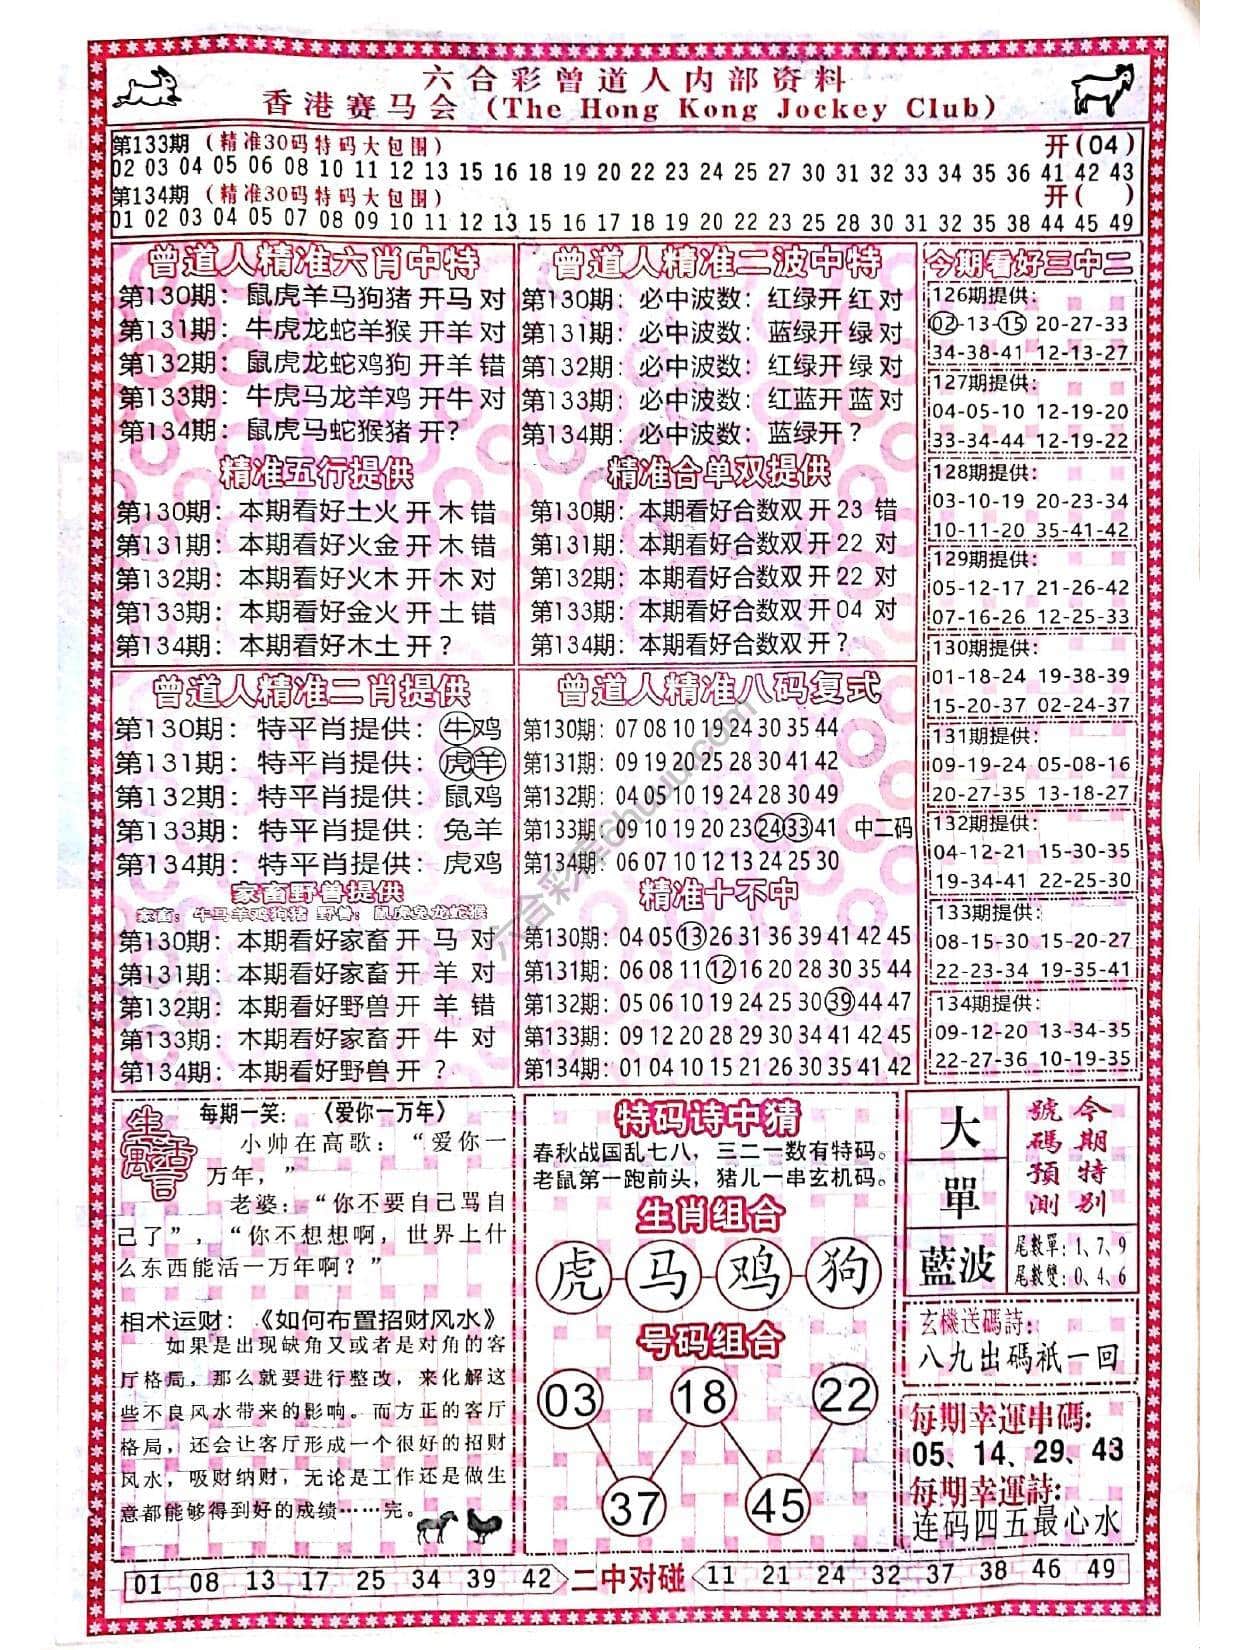 六合彩曾道人内部资料
香港赛马会 (The Hong Kong Jockey Club)
第133期 (精准30码特码大包围) 开(04)
02 03 04 05 06 08 10 11 12 13 15 16 18 19 20 22 24 25 27 30 31 32 33 34 35 36 41 42 43
第134期 (精准30码特码大包围) 开( )
01 02 03 04 05 07 08 09 10 11 12 13 15 16 17 18 19 20 22 25 28 30 31 32 35 38 44 45 49
曾道人精准六肖中特
第130期：鼠虎羊马狗猪 开马 对
第131期：牛虎龙蛇羊猴 开羊 对
第132期：鼠虎龙蛇鸡狗 开羊 错
第133期：牛虎马龙羊鸡 开牛 对
第134期：鼠虎马蛇猴猪 开?
精准五行提供
第130期：本期看好土火 开 木 错
第131期：本期看好火金 开 木 错
第132期：本期看好火木 开 木 对
第133期：本期看好金火 开 土 错
第134期：本期看好木土 开 ?
曾道人精准二波中特
第130期：必中波数：红绿开 红 对
第131期：必中波数：蓝绿开 绿 对
第132期：必中波数：红绿开 绿 对
第133期：必中波数：红蓝开 蓝 对
第134期：必中波数：蓝绿开 ?
精准合单双提供
第130期：本期看好合数双 开 23 错
第131期：本期看好合数双 开 22 对
第132期：本期看好合数双 开 22 对
第133期：本期看好合数双 开 04 对
第134期：本期看好合数双 开 ?
今期看好三中二
126期提供：
02-13-15 20-27-33
34-38-41 12-13-27
127期提供：
04-05-10 12-19-20
33-34-44 12-19-22
128期提供：
03-10-19 20-23-34
10-11-20 35-41-42
129期提供：
05-12-17 21-26-42
07-16-26 12-25-33
130期提供：
01-18-24 19-38-39
15-20-37 02-24-37
131期提供：
09-19-24 05-08-16
20-27-35 13-18-27
132期提供：
04-12-21 15-30-35
19-34-41 22-25-30
133期提供：
08-15-30 15-20-27
22-23-34 19-35-41
134期提供：
09-12-20 13-34-35
22-27-36 10-19-35
曾道人精准二肖提供
第130期：特平肖提供：牛鸡
第131期：特平肖提供：虎羊
第132期：特平肖提供：鼠鸡
第133期：特平肖提供：兔羊
第134期：特平肖提供：虎鸡
家畜野兽提供
家畜：牛马羊鸡狗猪 野兽：鼠虎兔龙蛇猴
第130期：本期看好家畜 开 马 对
第131期：本期看好家畜 开 羊 对
第132期：本期看好野兽 开 羊 错
第133期：木期看好家畜 开 牛 对
第134期：本期看好野兽 开 ?
曾道人精准八码复式
第130期：07 08 10 19 24 30 35 44
第131期：09 19 20 25 28 30 41 42
第132期：04 05 10 19 24 28 30 49
第133期：09 10 19 20 23 24 33 41 中二码
第134期：06 07 10 12 13 24 25 30
精准十不中
第130期：04 05 13 26 31 36 39 41 42 45
第131期：06 08 11 12 16 20 28 30 35 44
第132期：05 06 10 19 24 25 30 39 44 47
第133期：09 12 20 28 29 30 34 41 42 45
第134期：01 04 10 15 21 26 30 35 41 42
六合彩库6huuu.com
生活寓言
每期一笑：《爱你一万年》
小帅在高歌：“爱你一
万年，”
老婆：“你不要自己骂自
己了”，“你不想想啊，世界上什
么东西能活一万年啊？”
相术运财：《如何布置招财风水》
如果是出现缺角又或者是对角的客
厅格局，那么就要进行整改，来化解这
些不良风水带来的影响。而方正的客厅
格局，还会让客厅形成一个很好的招财
风水，吸财纳财，无论是工作还是做生
意都能够得到好的成绩……完。
特码诗中猜
春秋战国乱七八，三二一数有特码。
老鼠第一跑前头，猪儿一串玄机码。
生肖组合
虎 马 鸡 狗
号码组合
03 18 22
37 45
大
單
藍波
今期特别
號碼預測
尾數單：1、7、9
尾數雙：0、4、6
玄機送碼詩：
八九出碼祇一回
每期幸運串碼：
05、14、29、43
每期幸運詩：
连码四五最心水
01 08 13 17 25 34 39 42 二中对碰 11 21 24 32 37 38 46 49